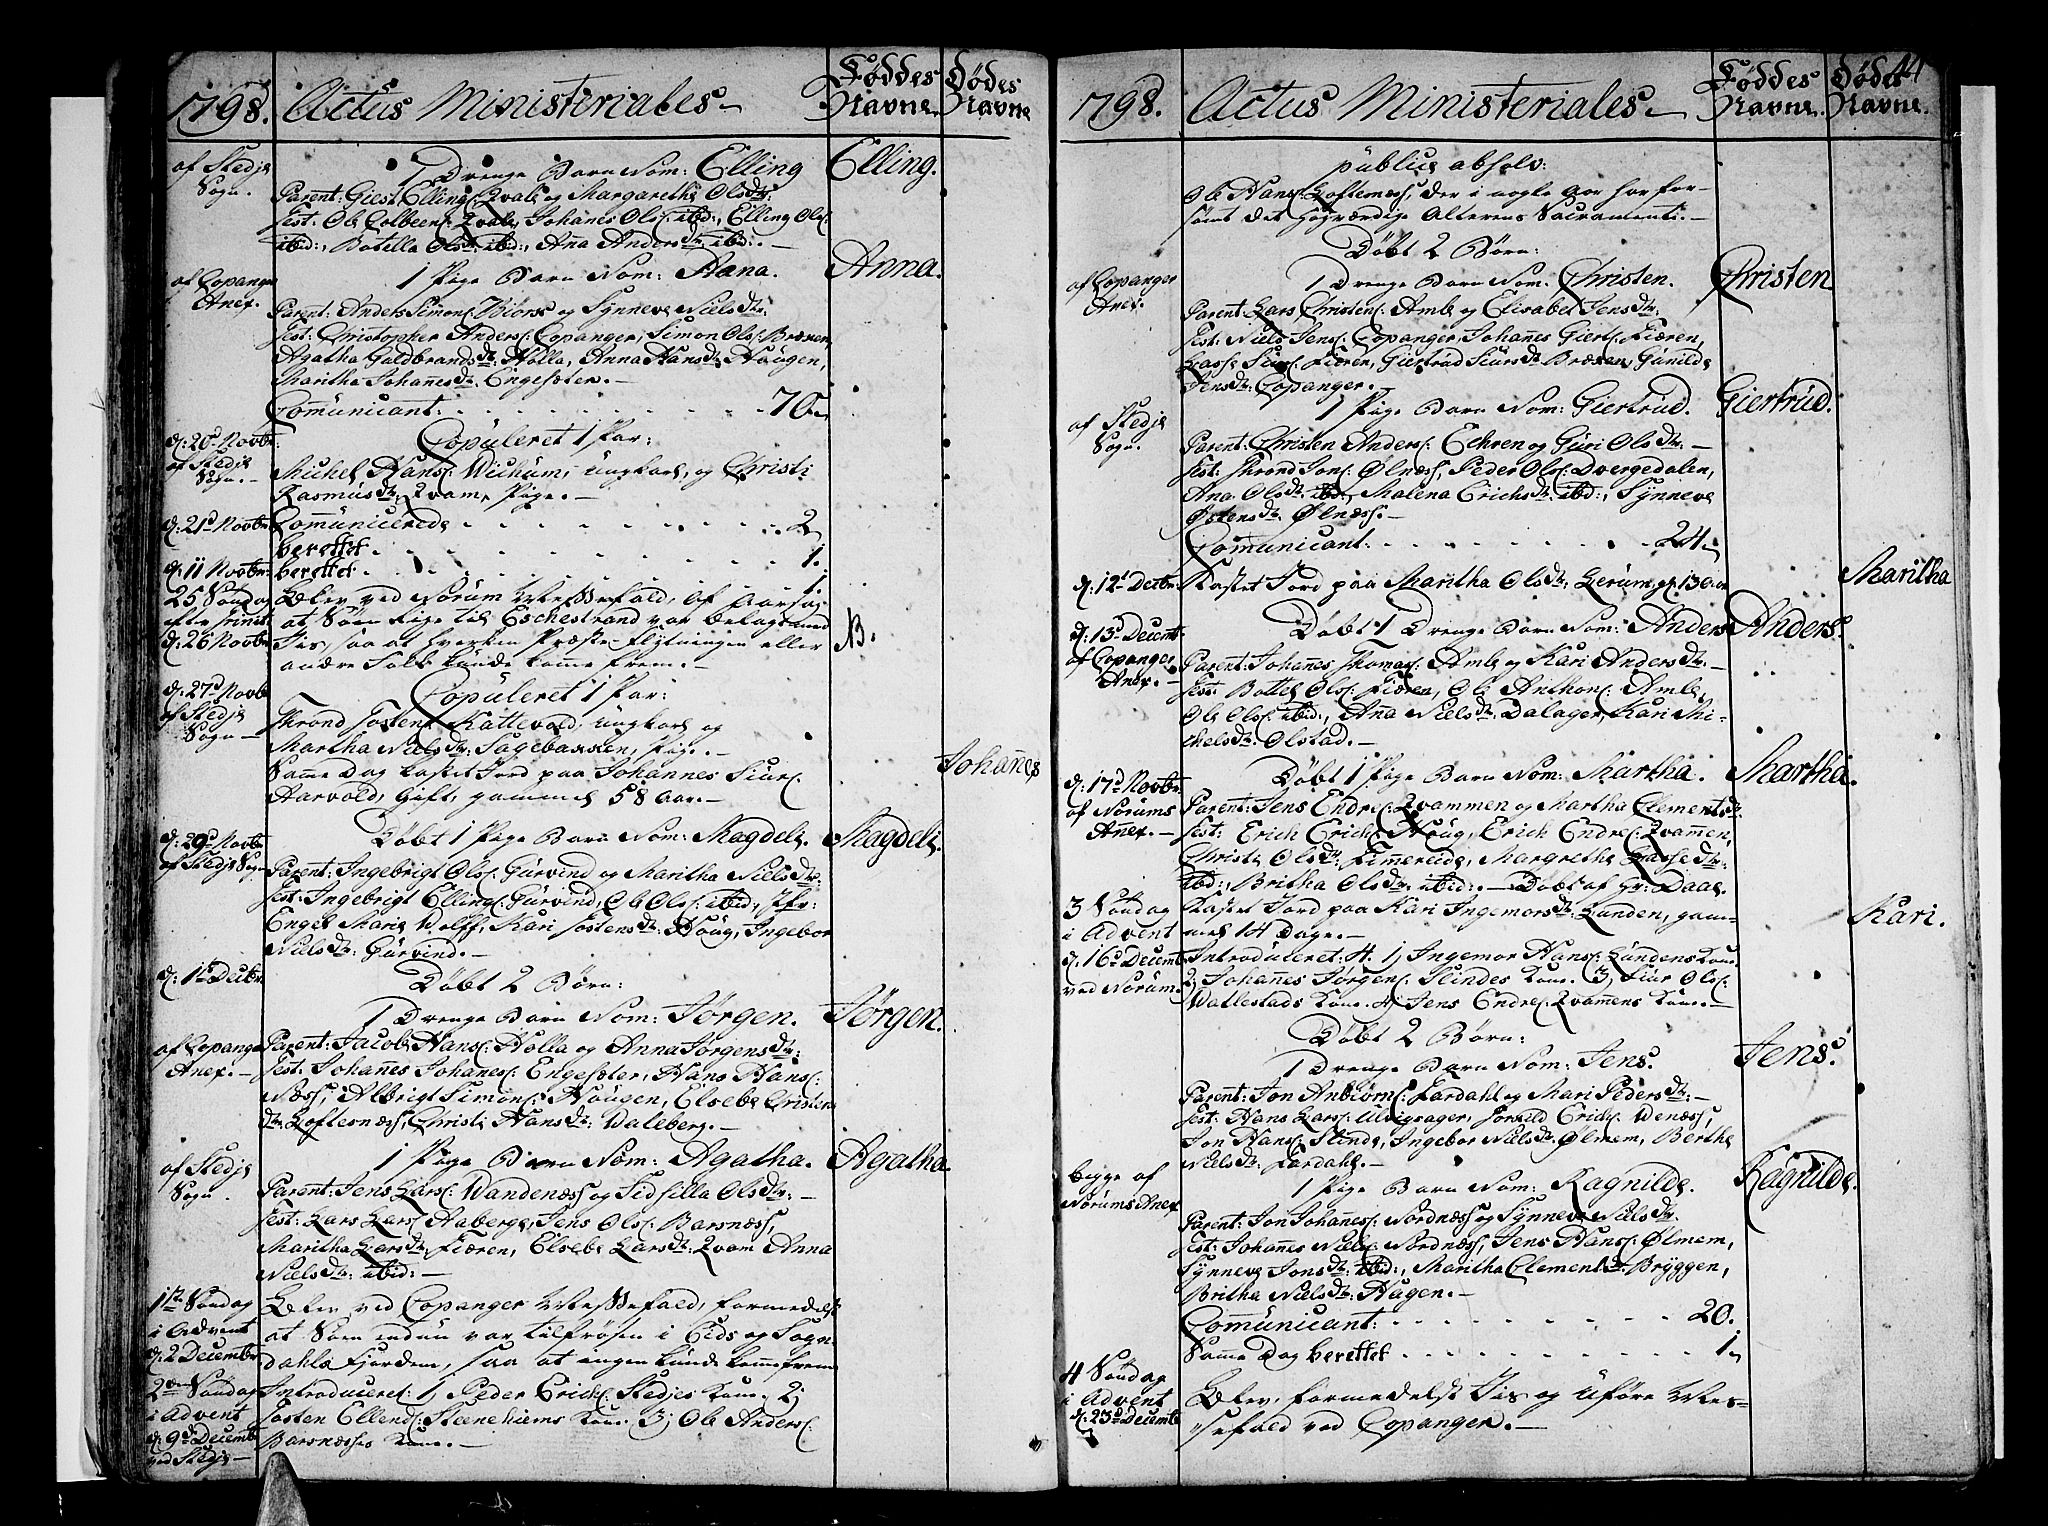 1798. Actus Ministeriales Føddes Navne Dødes Navne
af Stedje Sogn. 1 Drenge Barn Nom: Elling Elling.
Parent: Giest Ellings: Qvale og Margarethe Olsdr:
Test: Ole Colbeens: Qvale, Johañes Ols: ibid:, Elling Ols:
ibid:, Botilla Olsdr: ibid:, Aña Andersdr: ibid:.
af Copanger Añex. 1 Pige Barn Nom: Aña. Anna.
Parent: Anders Simons: Biørs og Synneve Nielsdr:
Test: Christopher Anders: Copanger, Simon Ols: Bræeen,
Agatha Guldbrandsdr: Holla, Anna Hansdr: Haugen,
Maritha Johañesdr: Engesæter.
Comunicant: 70.
d: 20d Novbr: af Stedje Sogn. Copuleret 1 Par:
Michel Hans: Wichum, Ungkarl, og Christi
Rasmusdr: Qvam, Pige.
d: 21d Novbr: Comunicerede 2
berettet 1.
d: 11 Novbr: berettet 1.
25 Søndag efter Trinit: d: 26 Novbr: Blev ved Norum Messefald, af Aarsag
at Søen lige til Eschestrand var belagt med
Iis, saa at hverken Præste-flytningen eller NB.
andre Folk kunde komme frem.
d: 27d Novbr: af Stedje Sogn Copuleret 1 Par:
Thrond Jostens: Kattevold, Ungkarl og
Martha Nielsdr: Sagebacken, Pige.
Samme Dag kastet Jord paa Johannes Siurs: Johañes
Aarvold, Gift, gammel 58 Aar.
d: 29d Novbr: af Stedje Sogn Døbt 1 Pige Barn Nom: Magdeli. Magdeli.
Parent: Ingebrigt Ols: Gurvind og Maritha Nielsdr:
Test: Ingebrigt Ellings: Gurvind, Ole Ols: ibid:, Jfr:
Engel Marie Wolff, Kari Jostensdr: Houg, Ingebor
Nielsdr: Gurvind.
d: 1d Decbr: Døbt 2 Børn:
1 Drenge Barn Nom: Jørgen. Jørgen.
af Copanger Añex. Parent: Jacob Hans: Holla og Anna Jørgensdr:
Test: Johañes Johañes: Engesæter, Hans Hans:
Næss, Albrigt Simons: Haugen, Elsebe Cristen
dr: Loftesnæss, Christi Hansdr: Waleberg.
af Stedje Sogn. 1 Pige Barn Nom: Agatha. Agatha.
Parent: Jens Lars: Wandenæss og Sidsilla Olsdr:
Test: Lars Lars: Aaberge, Jens Ols: Barsnæss,
Maritha Larsdr: Fieren, Elsebe Larsdr: Qvam Anna
Nielsdr: ibid:
1te Søndag i Advent d: 2 Decembr: Blev ved Copanger Messefald, formedelst
at Søen endnu var tilfrosen i Eids og Sogn
dahls Fjorden, saa at ingen kunde komme frem
2den Søndag i Advent d: 9d Decembr: ved Stedje Introduceret: 1, Peder Erichs: Stedjes Kone. 2,
Josten Ellends: Steenehiems Kone. 3, Ole Anders:
Barsnæsses Kone.
44
1798. Actus Ministeriales Føddes Navne. Dødes Navne.
publice absolv:
Ole Hans: Loftesnæss, der i nogle Aar har for-
sømt det høyværdige Alterens Sacramente.
Døbt 2 Børn:
af Copanger Añex. 1 Drenge Barn Nom: Christen. Christen
Parent: Lars Christens: Amble og Elisabet Jensdr:
Test: Niels Jens: Copanger, Johañes Gierts: Fieren,
Lasse Siurs: Fieren, Giertrud Siursdr: Bræeen, Gunilde
Jensdr: Copanger.
af Stedje Sogn. 1 Pige Barn Nom: Giertrud. Giertrud.
Parent: Christen Anders: Echren og Guri Olsdr:
Test: Thrond Jons: Ølnæss, Peder Ols: Dvergedalen,
Ana Olsdr: ibid, Malena Erichsdr: ibid:, Synneve
Østensdr: Ølnæss.
Comunicant: 24.
d: 12t Decbr: Kastet Jord paa Maritha Olsdr: Lerum, gl: 13 Aar Maritha
d: 13d Decembr: Døbt 1 Drenge Barn Nom: Anders Anders.
af Copanger Añex. Parent: Johannes Thomas: Amble og Kari Andersdr:
Test: Bottel Ols: Fieren, Ole Anthons: Amble,
Ole Ols: ibid:, Ana Nielsdr: Dalager, Kari Mi-
chelsdr: Olstad.
d: 17d Novbr: af Norums Añex. Døbt 1 Pige Barn Nom: Martha. Martha.
Parent: Jens Endres: Qvammen og Martha Clementsdr:
Test: Erich Erichs: Houg, Erich Endres: Qvammen,
Christi Olsdr: Fimreide, Margrethe Lassedr:
ibid:, Britha Olsdr: ibid:. Døbt af Hr: Daae.
3 Søndag i Advent Kastet Jord paa Kari Ingemorsdr: Lunden, gam- Kari.
mel 14 Dage.
d: 16d Decembr: ved Norum. Introduceret: 4. 1, Ingemor Hans: Lundens Kone.
2, Johañes Jørgens: Slindes Kone. 3, Siur Ols:
Wallestads Kone. 4, Jens Endres: Qvamens Kone.
Døbt 2 Børn:
1 Drenge Barn Nom: Jens. Jens.
Parent: Jon Anbiørns: Lardahl og Mari Pedersdr:
Test: Hans Lars: Ulvigsager, Torkild Erichs: Wenæss,
Jon Hans: Slinde, Ingebor Nielsdr: Ølmem, Berthe
Nielsdr: Lardahl.
begge af Norums Añex 1 Pige Barn Nom: Ragnilde. Ragnilde.
Parent: Jon Johañes: Nordnæss og Synneve Nielsdr:
Test: Johañes Niels: Nordnæss, Jens Hans: Ølmem,
Synneve Jonsdr: ibid:, Maritha Clementsdr: Bryggen,
Britha Nielsdr: Hagen.
Comunicant: 20.
Samme Dag berettet 1.
4 Søndag i Advent d: 23d Decembr: Blev, formedelst Iis og Uføre Mes-
sefald ved Copanger.